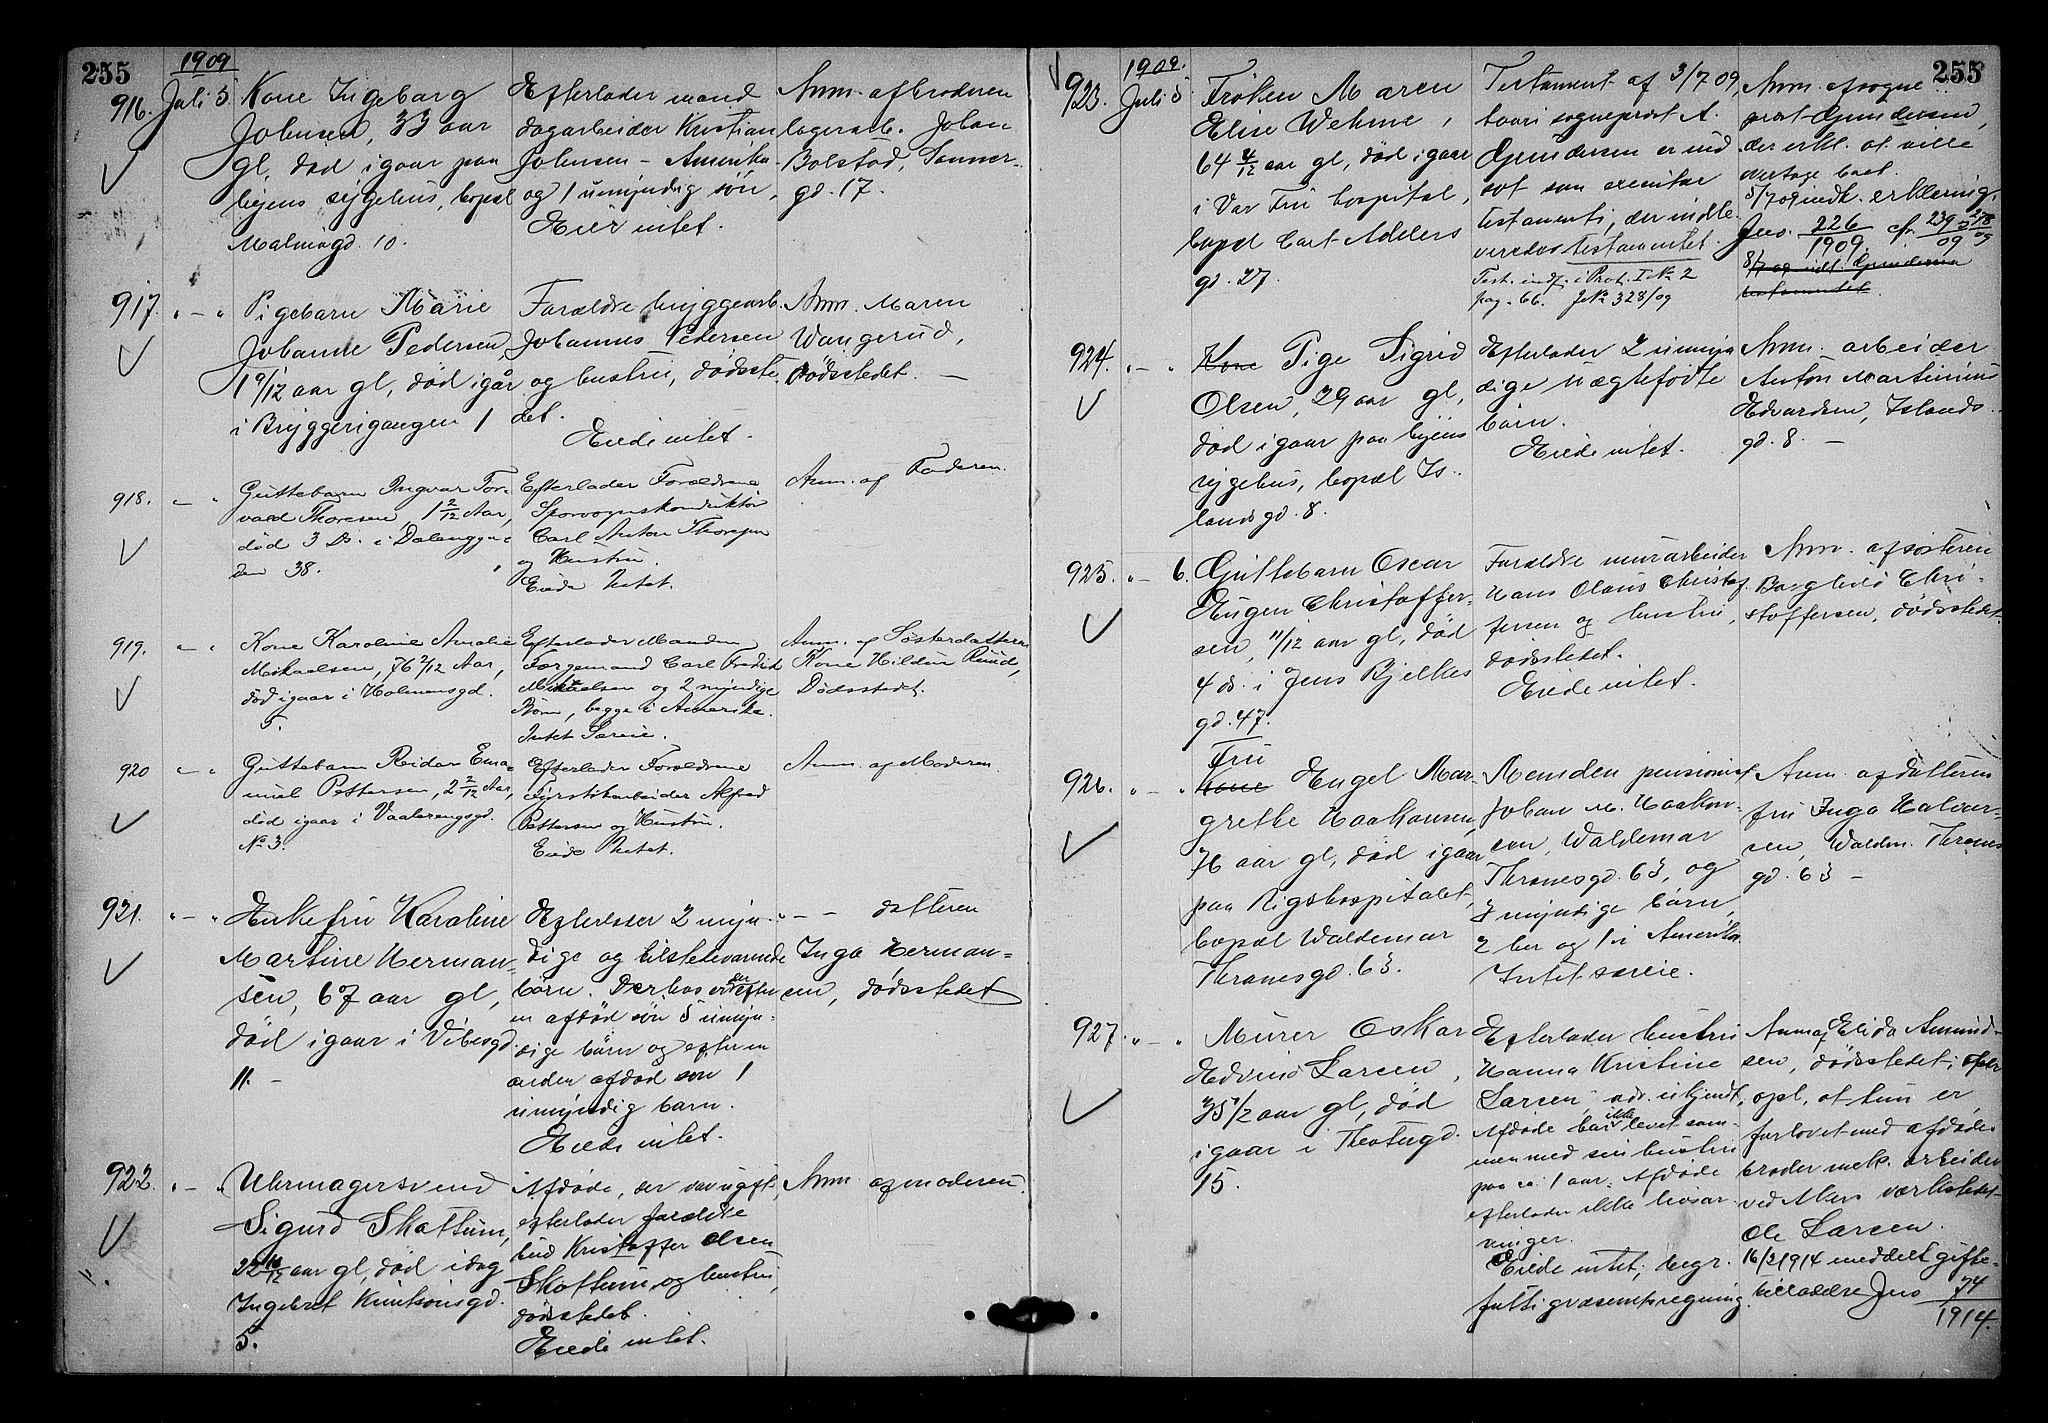 255
1909
916. Juli 5 Kone Ingeborg
Johnsen, 33 aar
gl, død igaar paa
byens sygehus, bopæl
Malmøgd. 10.
Efterlader mand
dagarbeider Kristian
Johnsen – Amerika
og 1 umyndig søn,
Eier intet.
Anm. af broderen
lagerarb. Johan
Bolstad, Sanner-
gd. 17.
917. " – " Pigebarn Marie
Johanne Pedersen,
1 9/12 aar gl, død igår
i Bryggerigangen 1
Forældre bryggearb.
Johannes Pedersen
og hustru, dødsste
det.
Eiede intet.
Anm. Maren
Wangerud,
Dødsstedet. –
918. " – " Guttebarn Ingvar Tor-
vald Thoresen, 1 2/12 Aar,
død 3 Ds. i Dalengga-
den 38.
Efterlader Forældrene
Sporvognskonduktør
Carl Anton Thoresen
og Hustru.
Eiede Intet.
Anm. af Faderen.
919. " – " Kone Karoline Amalie
Mikaelsen, 76 2/12 Aar,
død igaar i Holmensgd.
5.
Efterlader Manden
Fargemand Carl Fredrik
Mikaelsen og 2 myndige
Børn, begge i Amerika.
Intet Særeie.
Anm. af Søsterdatteren
Kone Hildur Ruud,
Dødsstedet.
920 " – " Guttebarn Reidar Ema-
nuel Pettersen, 2 2/12 Aar,
død igaar i Vaalerengsgd.
No 3.
Efterlader Forældrene
Fyrstikarbeider Alfred
Pettersen og Hustru.
Eiede Intet.
Anm. af Moderen.
921. " – " Enkefru Karoline
Martine Herman-
sen, 67 aar gl,
død igaar i Vibesgd.
11. –
Efterlader 2 myn-
dige og tilstedeværende
børn. Derhos efter
en afdød søn 5 umyn-
dige børn og efter en
anden afdød søn 1
umyndig barn.
Eiede intet.
" – – datteren
Inga Herman-
sen, dødsstedet
922. " – " Uhrmagersvend
Sigurd Skattum,
22 10/12 aar gl, død idag
Ingebret Knutsonsgd.
5.
Afdøde, der var ugift,
efterlader forældre
bud Kristoffer Olsen
Skattum og hustru,
dødsstedet.
Eiede intet.
Anm af moderen.
255
1909.
923. Juli 5 Frøken Maren
Elise Wehme,
64 4/12 aar gl, død igaar
i Vor Frue hospital,
bopæl Cort Adelers
gd. 27.
Testament af 3/7 09,
hvori sogneprest A.
Gundersen er ind
sat som executor
testamenti, der indle
veredes testamentet.
Test. indf. i Prot. I No 2
pag. 66. JNo 328/09
Anm. af sogne
prest Gundersen,
der erkl. at ville
overtage boet.
5/7 09 indk. erklæring.
Jno. 226/1909 cfr. 239/09
8/7 09 indl. Gundersen
testamentet.
924. " – " Kone Pige Sigrid
Olsen, 29 aar gl,
død igaar paa byens
sygehus, bopæl Is-
landsgd. 8.
Efterlader 2 umyn
dige uægtefødte
børn.
Eiede intet.
Anm. arbeider
Anton Martinius
Edvardsen, Islands
gd. 8. –
925. " – 6. Guttebarn Oscar
Eugen Christoffer-
sen, 11/12 aar gl, død
4 ds. i Jens Bjelkes
gd. 47.
Forældre murarbeider
Hans Olaus Christof
fersen og hustru,
dødsstedet.
Eiede intet.
Anm. af søsteren
Borghild Chri-
stoffersen, dødsstedet.
926. " – " Fru
Kone Engel Mar-
grethe Haakonsen,
76 aar gl, død igaar
paa Rigshospitalet,
bopæl Waldemar
Thranesgd. 63.
Manden pensionist
Johan M. Haakon-
sen, Waldemar
Thranesgd. 63, og
3 myndige børn,
2 her og 1 i Amerika.
Intet særeie.
Anm. af datteren
fru Inga Halvor-
sen, Waldm. Thranes
gd. 63 –
927. " – " Murer Oskar
Edvind Larsen,
35 1/2 aar gl, død
igaar i Toftesgd.
15.
Efterlader hustru
Hanna Kristine
Larsen, adr. ukjendt,
Afdøde har ikke levet sam-
men med sin hustru
paa ca. 1 aar. Afdøde
efterlader ikke livsar-
vinger.
Eiede intet; begr.
fattigvæsenets regning.
Anm af Elida Amund-
sen, dødsstedet;
opl, at hun er
forlovet med afdødes
broder mek. arbeider
ved Akers værksted
Ole Larsen.
16/2 1914 meddelt gifte-
tilladelse Jno 74/1914.